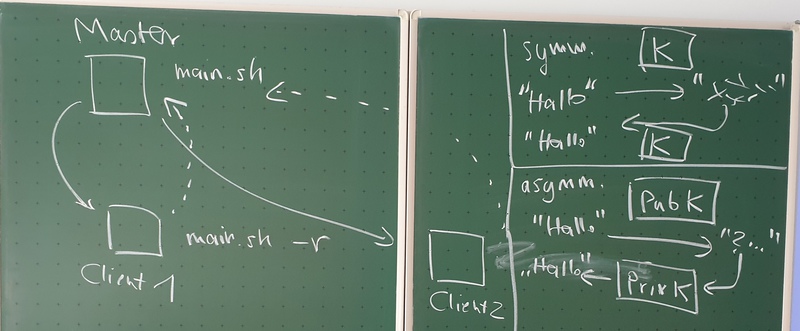 Master
main.sh
main.sh -r
Client 1
Client 2
symm.
K
"Hallo"
"Hallo"
K
asymm.
PubK
"Hallo"
"2..."
"Hallo"
PrivK